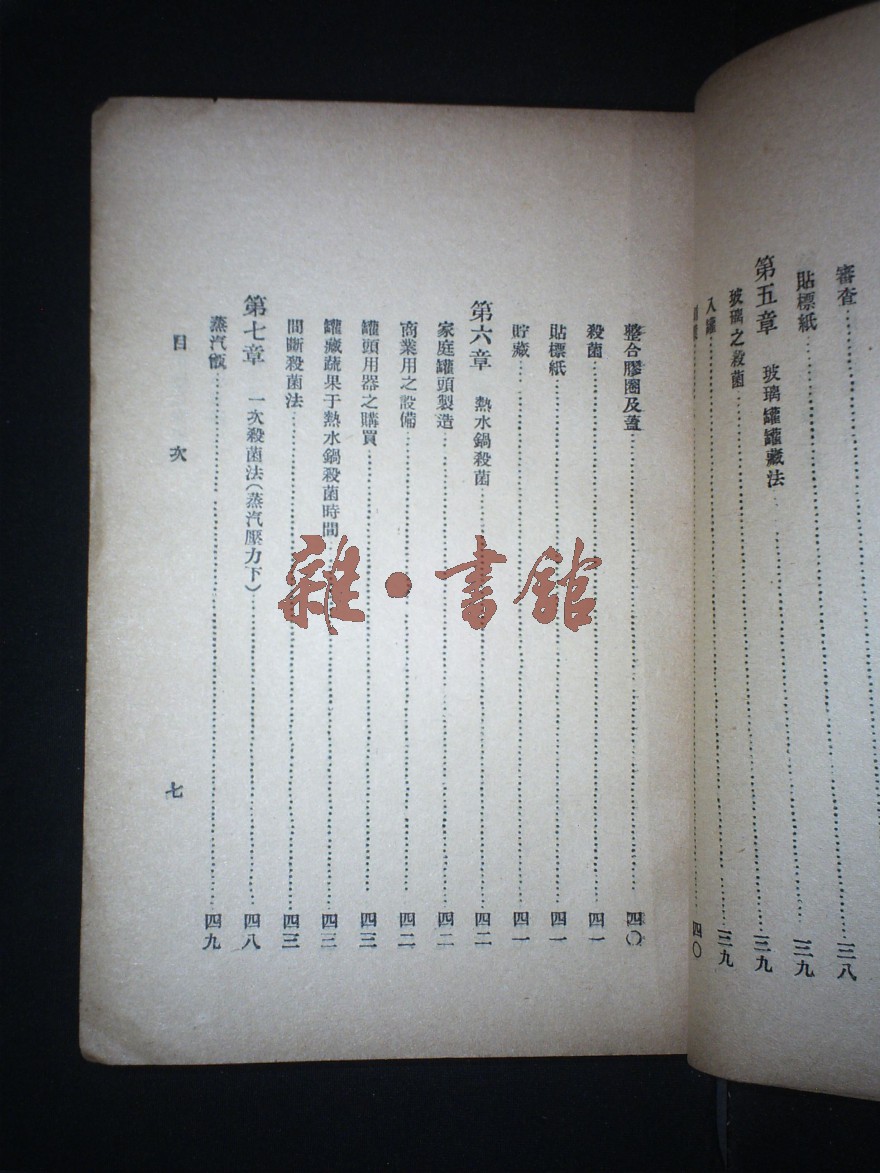 審查……三八
貼標紙……三九
第五章 玻璃罐罐藏法……三九
玻璃之殺菌……三九
入罐……四〇
整合膠圈及蓋……四〇
殺菌……四一
貼標紙……四一
貯藏……四一
第六章 熱水鍋殺菌……四二
家庭罐頭製造……四二
商業用之設備……四二
罐頭用器之購買……四三
罐藏蔬果于熱水鍋殺菌時間……四三
間斷殺菌法……四三
第七章 一次殺菌法（蒸汽壓力下）……四八
蒸汽甑……四九
目次
七
雜·書館